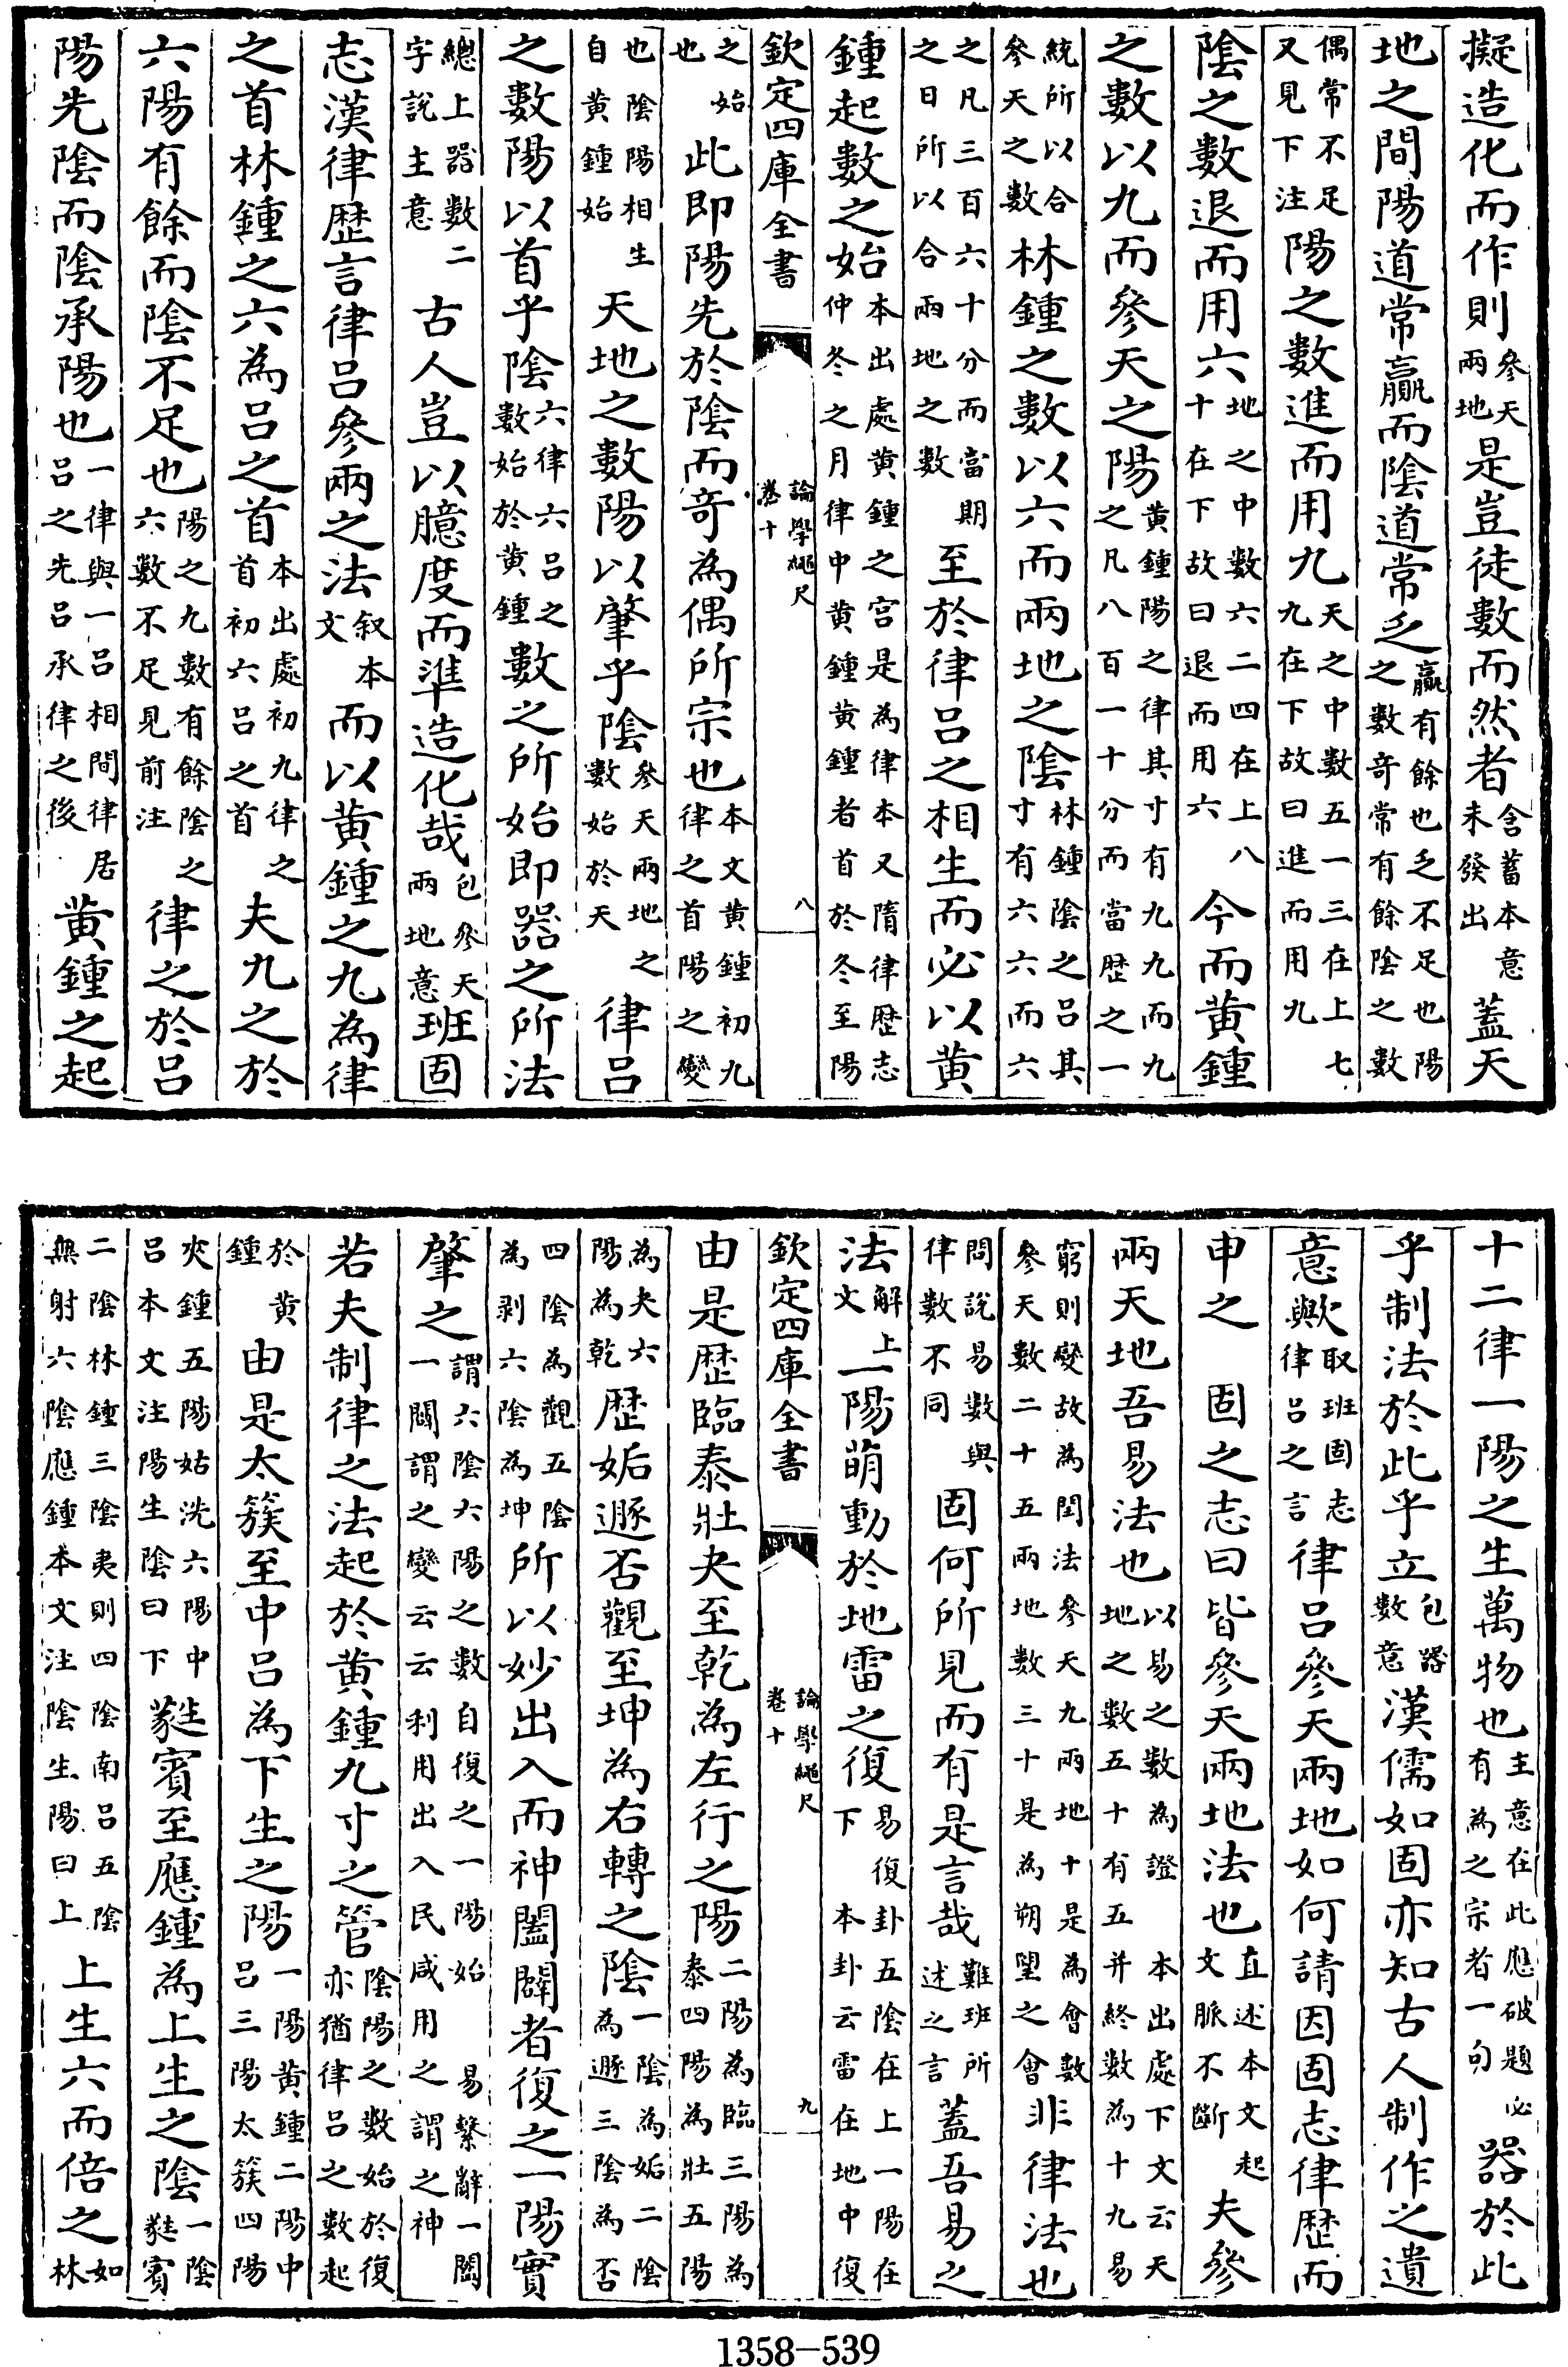 擬造化而作則參天兩地是豈徒數而然者含蓄本意未發出蓋天
地之間陽道常贏而陰道常乏贏有餘也乏不足也陽之數奇常有餘陰之數
偶常不足又見下注陽之數進而用九天之中數五一三在上七九在下故曰進而用九
陰之數退而用六地之中數六二四在上八十在下故曰退而用六今而黃鍾
之數以九而參天之陽黃鍾陽之律其寸有九九而九之凡八百一十分而當歴之一
統所以合參天之數林鍾之數以六而兩地之陰林鍾陰之呂其寸有六六而六
之凡三百六十分而當期之日所以合兩地之數至於律呂之相生而必以黃
鍾起數之始本出處黃鍾之宮是為律本又隋律歴志仲冬之月律中黃鍾黃鍾者首於冬至陽
欽定四庫全書 論學繩尺卷十 八
之始也此即陽先於陰而奇為偶所宗也本文黃鍾初九律之首陽之變
也陰陽相生自黃鍾始天地之數陽以肇乎陰參天兩地之數始於天律呂
之數陽以首乎陰六律六呂之數始於黃鍾數之所始即器之所法
總上器數二字說主意古人豈以臆度而準造化哉包參天兩地意班固
志漢律歴言律呂參兩之法叙本文而以黃鍾之九為律
之首林鍾之六為呂之首本出處初九律之首初六呂之首夫九之於
六陽有餘而陰不足也陽之九數有餘陰之六數不足見前注律之於呂
陽先陰而陰承陽也一律與一呂相間律居呂之先呂承律之後黃鍾之起
十二律一陽之生萬物也主意在此應破題必有為之宗者一句器於此
乎制法於此乎立包器數意漢儒如固亦知古人制作之遺
意歟取班固志律呂之言律呂參天兩地如何請因固志律歴而
申之 固之志曰皆參天兩地法也直述本文起文脈不斷夫參
兩天地吾易法也以易之數為證地之數五十有五并終數為十九易本出處下文云天
窮則變故為閏法參天九兩地十是為會數參天數二十五兩地數三十是為朔望之會非律法也
問說易數與律數不同固何所見而有是言哉難班所述之言蓋吾易之
法解上文一陽萌動於地雷之復易復卦五陰在上一陽在下本卦云雷在地中復
欽定四庫全書 論學繩尺卷十 九
由是歴臨泰壯夬至乾為左行之陽二陽為臨三陽為泰四陽為壯五陽
為夬六陽為乾歴姤遯否觀至坤為右轉之陰一陰為姤二陰為遯三陰為否
四陰為觀五陰為剥六陰為坤所以妙出入而神闔闢者復之一陽實
肇之謂六陰六陽之數自復之一陽始易繫辭一闔一闢謂之變云云利用出入民咸用之謂之神
若夫制律之法起於黃鍾九寸之管陰陽之數始於復亦猶律呂之數起
於黃鍾由是太簇至中呂為下生之陽一陽黃鍾二陽中呂三陽太簇四陽
夾鍾五陽姑洗六陽中呂本文注陽生陰曰下蕤賓至應鍾為上生之陰一陰蕤賓
二陰林鍾三陰夷則四陰南呂五陰無射六陰應鍾本文注陰生陽曰上上生六而倍之如林
1358—539